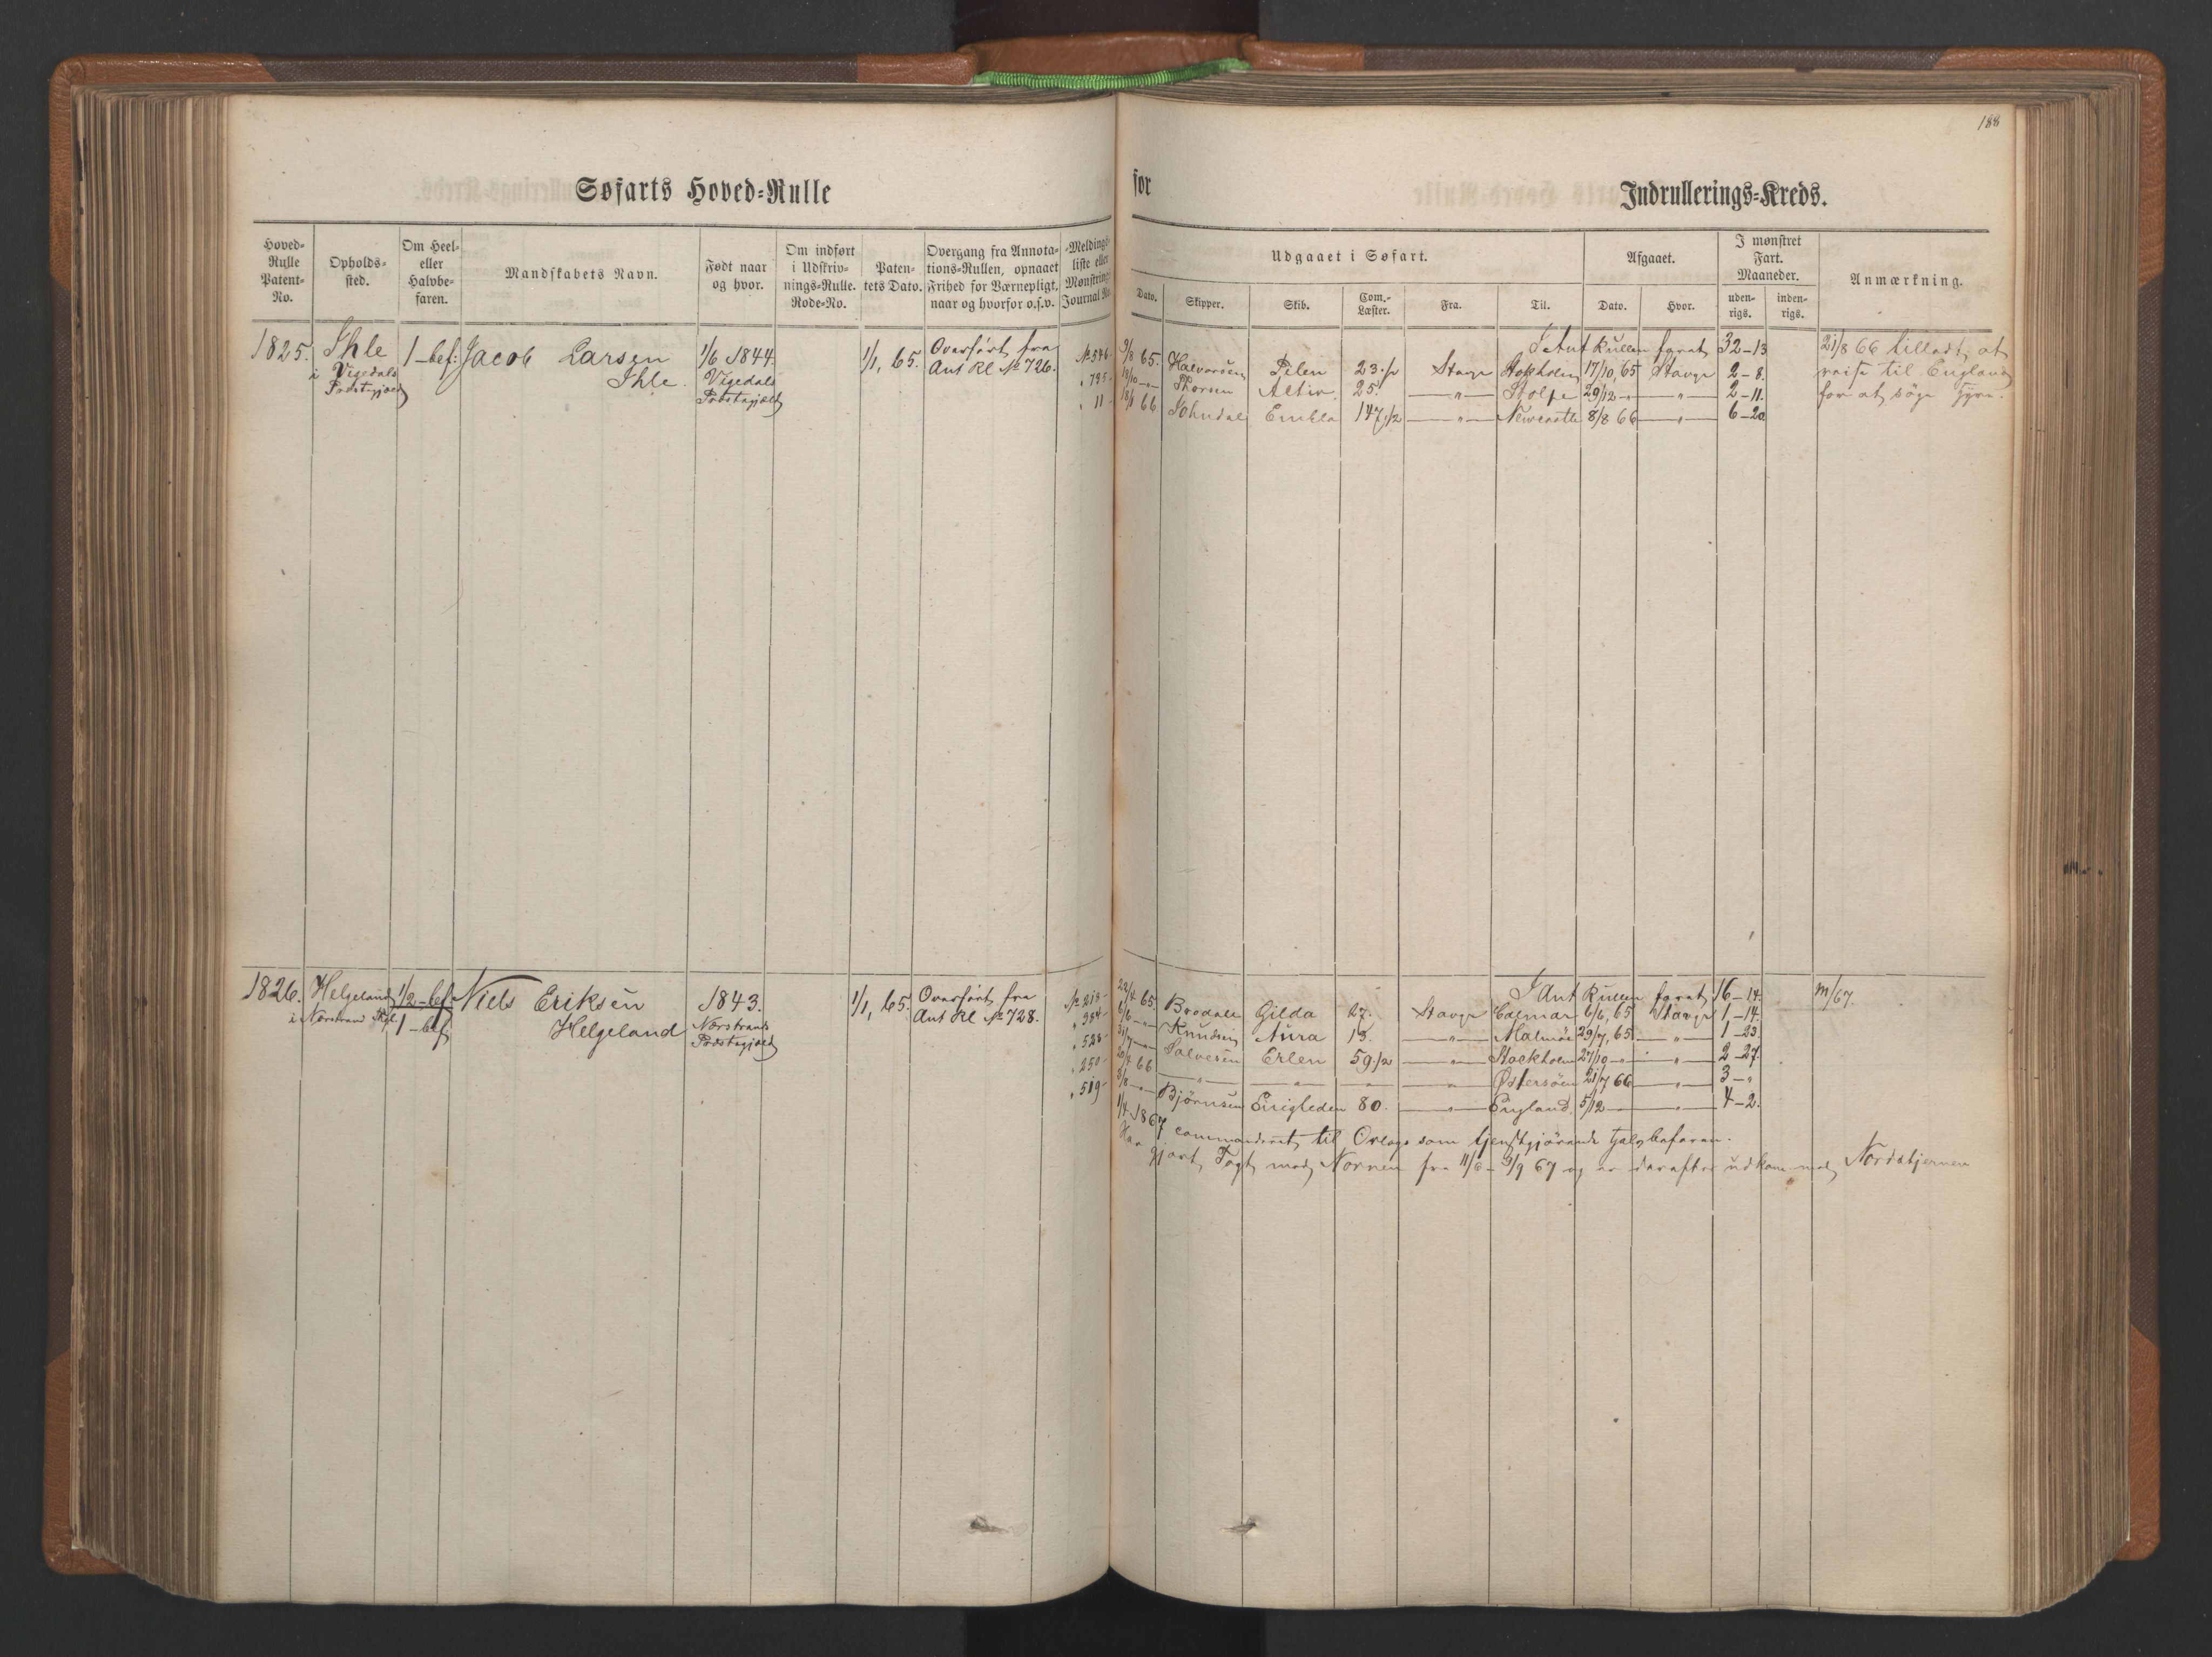 188
Søfarts Hoved-Rulle for Indrullerings-Kreds.
Hoved-Rulle Patent-No.
Opholds-sted.
Om Heel- eller Halvbe-faren.
Mandskabets Navn.
Født naar og hvor.
Om indført i Udskriv-nings-Rulle. Rode-No.
Paten-tets Dato.
Overgang fra Annota-tions-Rullen, opnaaet Frihed for Værnepligt, naar og hvorfor o.s.v.
Meldings-liste eller Mønstrings Journal No.
Udgaaet i Søfart.
Dato.
Skipper.
Skib.
Com.-Læster.
Fra.
Til.
Afgaaet.
Dato.
Hvor.
I mønstret Fart. Maaneder.
uden-rigs.
inden-rigs.
Anmærkning.
1825. Ihle 1-bef: Jacob Larsen 1/6 1844. 1/1, 65. Overført fra
i Vigedals Ihle. Vigedals Ant Rl № 726.
Præstegjæld Præstegjæld
I Ant Rullen 32-13
№ 546 9/8 65. Halvorsen Pelen 23 1/2 Stavgr Stokholm 17/10, 65 Stavgr 2-8.
" 795 18/10 -"- Thorsen Aktiv 25. -"- Stolpe 29/12 -"- -"- 2-11.
" 11 18/1 66. Johndal Embla 147 1/2 -"- Newcastle 8/8 66 -"- 6-20
21/8 66 tilladt at
reise til England
for at søge Hyre.
1826. Helgeland 1/2-bef. Niels Eriksen 1843. 1/1, 65. Overført fra
i Nærstrand Pgl. 1-bef Helgeland Nærstrands Ant Rl № 728.
Præstegjæld
I Ant Rullen 16-14. m/67.
№ 218 22/4 65. Brodale Gilda 27. Stavgr Calmar 6/6, 65 Stavgr 1-14.
" 384 6/6 -"- Knudsen Aura 13. -"- Malmøe 29/7, 65 -"- 1-23.
" 528 31/7 -"- Salvesen Erlen 59 1/2 -"- Stockholm 27/10 -"- -"- 2-27.
" 250 66 -"- -"- -"- -"- Østersøen 21/7 66 -"- 3-"
" 519 3/8 -"- Bjørnsen Enigheden 80. -"- England 5/12 -"- -"- 4-2.
1/4 1867 commanderet til Orlogs som tjenstgjørende halvbefaren.
Har gjort Togt med Nornen fra 11/6 - 3/9 67 og er derefter udkom. med Nordstjernen